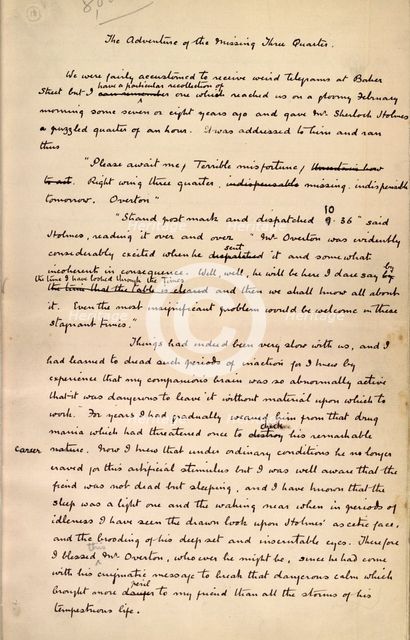 The Adventure of the Missing Three Quarter.
We were fairly accustomed to receive weird telegrams at Baker
have a particular recollection of
Street but I can remember one which reached us on a gloomy February
morning some seven or eight years ago and gave Mr. Sherlock Holmes
a puzzled quarter of an hour. It was addressed to him and ran
thus
"Please await me, Terrible misfortune, Uncertain how
to act. Right wing three quarter, indispensable missing. indispensible
tomorrow. Overton"
10
"Strand post mark and dispatched 9.36" said
sent
Holmes, reading it over and over "Mr. Overton was evidently
considerably excited when he despatched it and somewhat
incoherent in consequence. Well, well, he will be here I dare say by
the time I have looked through the Times
the time that the table is cleared and then we shall know all about
it. Even the most insignificant problem would be welcome in these
stagnant times."
Things had indeed been very slow with us, and I
had learned to dead such periods of inaction for I knew by
experience that my companion's brain was so abnormally active
that it was dangerous to leave it without material upon which to
work. For years I had gradually weaned him from that drug
check
mania which had threatened once to destroy his remarkable
Career nature. Now I knew that under ordinary conditions he no longer
craved for this artificial stimulus but I was well aware that the
fiend was not dead but sleeping, and I have known that the
sleep was a light one and the waking near when in periods of
idleness I have seen the drawn look upon Holmes' ascetic face,
and the brooding of his deep set and inscrutable eyes. Therefore
this
I blessed Mr. Overton, whoever he might be, since he had come
with his enigmatic message to break that dangerous calm which
peril
brought more danger to my friend than all the storms of his
tempestuous life.